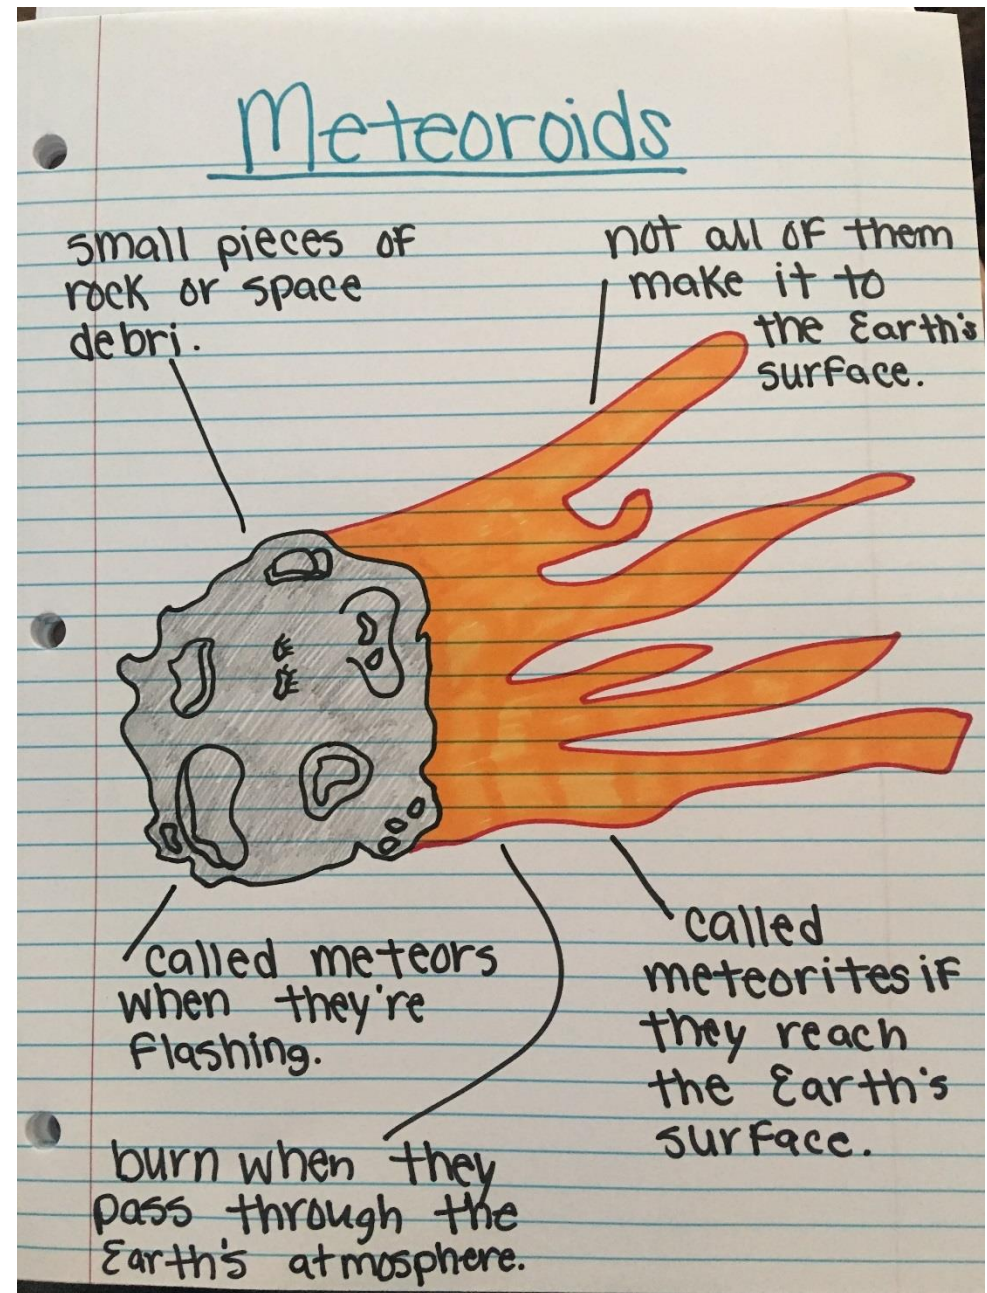 Meteoroids
small pieces of
rock or space
debri.
not all of them
make it to
the Earth's
surface.
called meteors
when they're
flashing.
called
meteorites if
they reach
the Earth's
surface.
burn when they
pass through the
Earth's atmosphere.